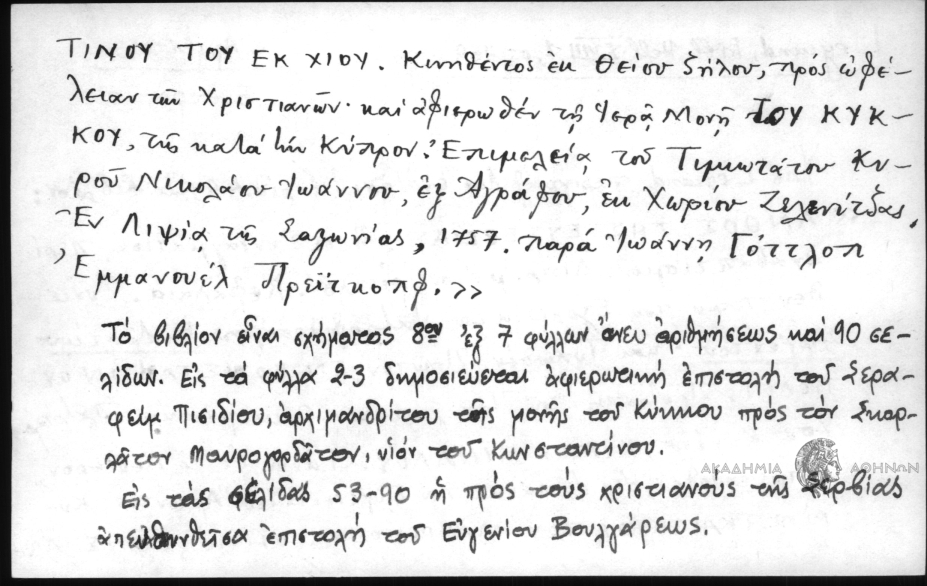 ΤΙΝΟΥ ΤΟΥ ΕΚ ΧΙΟΥ. Κινηθέντος ἐκ θείου ζήλου, πρός ὠφέ-
λειαν τῶν Χριστιανῶν· καί ἀφιερωθέν τῇ Ἱερᾷ Μονῇ ΤΟΥ ΚΥΚ-
ΚΟΥ, τῆς κατά τήν Κύπρον. Ἐπιμελείᾳ τοῦ Τιμιωτάτου Κυ-
ροῦ Νικολάου Ἰωάννου, ἐξ Ἀγράφου, ἐκ Χωρίου Ζελενίτζας,
Ἐν Λιψίᾳ τῆς Σαξωνίας, 1757. παρά Ἰωάννῃ Γόττλοπ
Ἐμμανουέλ Πρεΐτκοπφ.>>
Τό βιβλίον εἶναι σχήματος 8ου ἐξ 7 φύλλων ἄνευ ἀριθμήσεως καί 90 σε-
λίδων. Εἰς τά φύλλα 2-3 δημοσιεύεται ἀφιερωτική ἐπιστολή τοῦ Σερα-
φείμ Πισιδίου, ἀρχιμανδρίτου τῆς μονῆς τοῦ Κύκκου πρός τόν Σκαρ-
λᾶτον Μαυρογορδᾶτον, υἱόν τοῦ Κωνσταντίνου.
Εἰς τάς σελίδας 53-90 ἡ πρός τούς χριστιανούς τῆς Σερβίας
ἀπευθυνθεῖσα ἐπιστολή τοῦ Εὐγενίου Βουλγάρεως.
ΑΚΑΔΗΜΙΑ ΑΘΗΝΩΝ